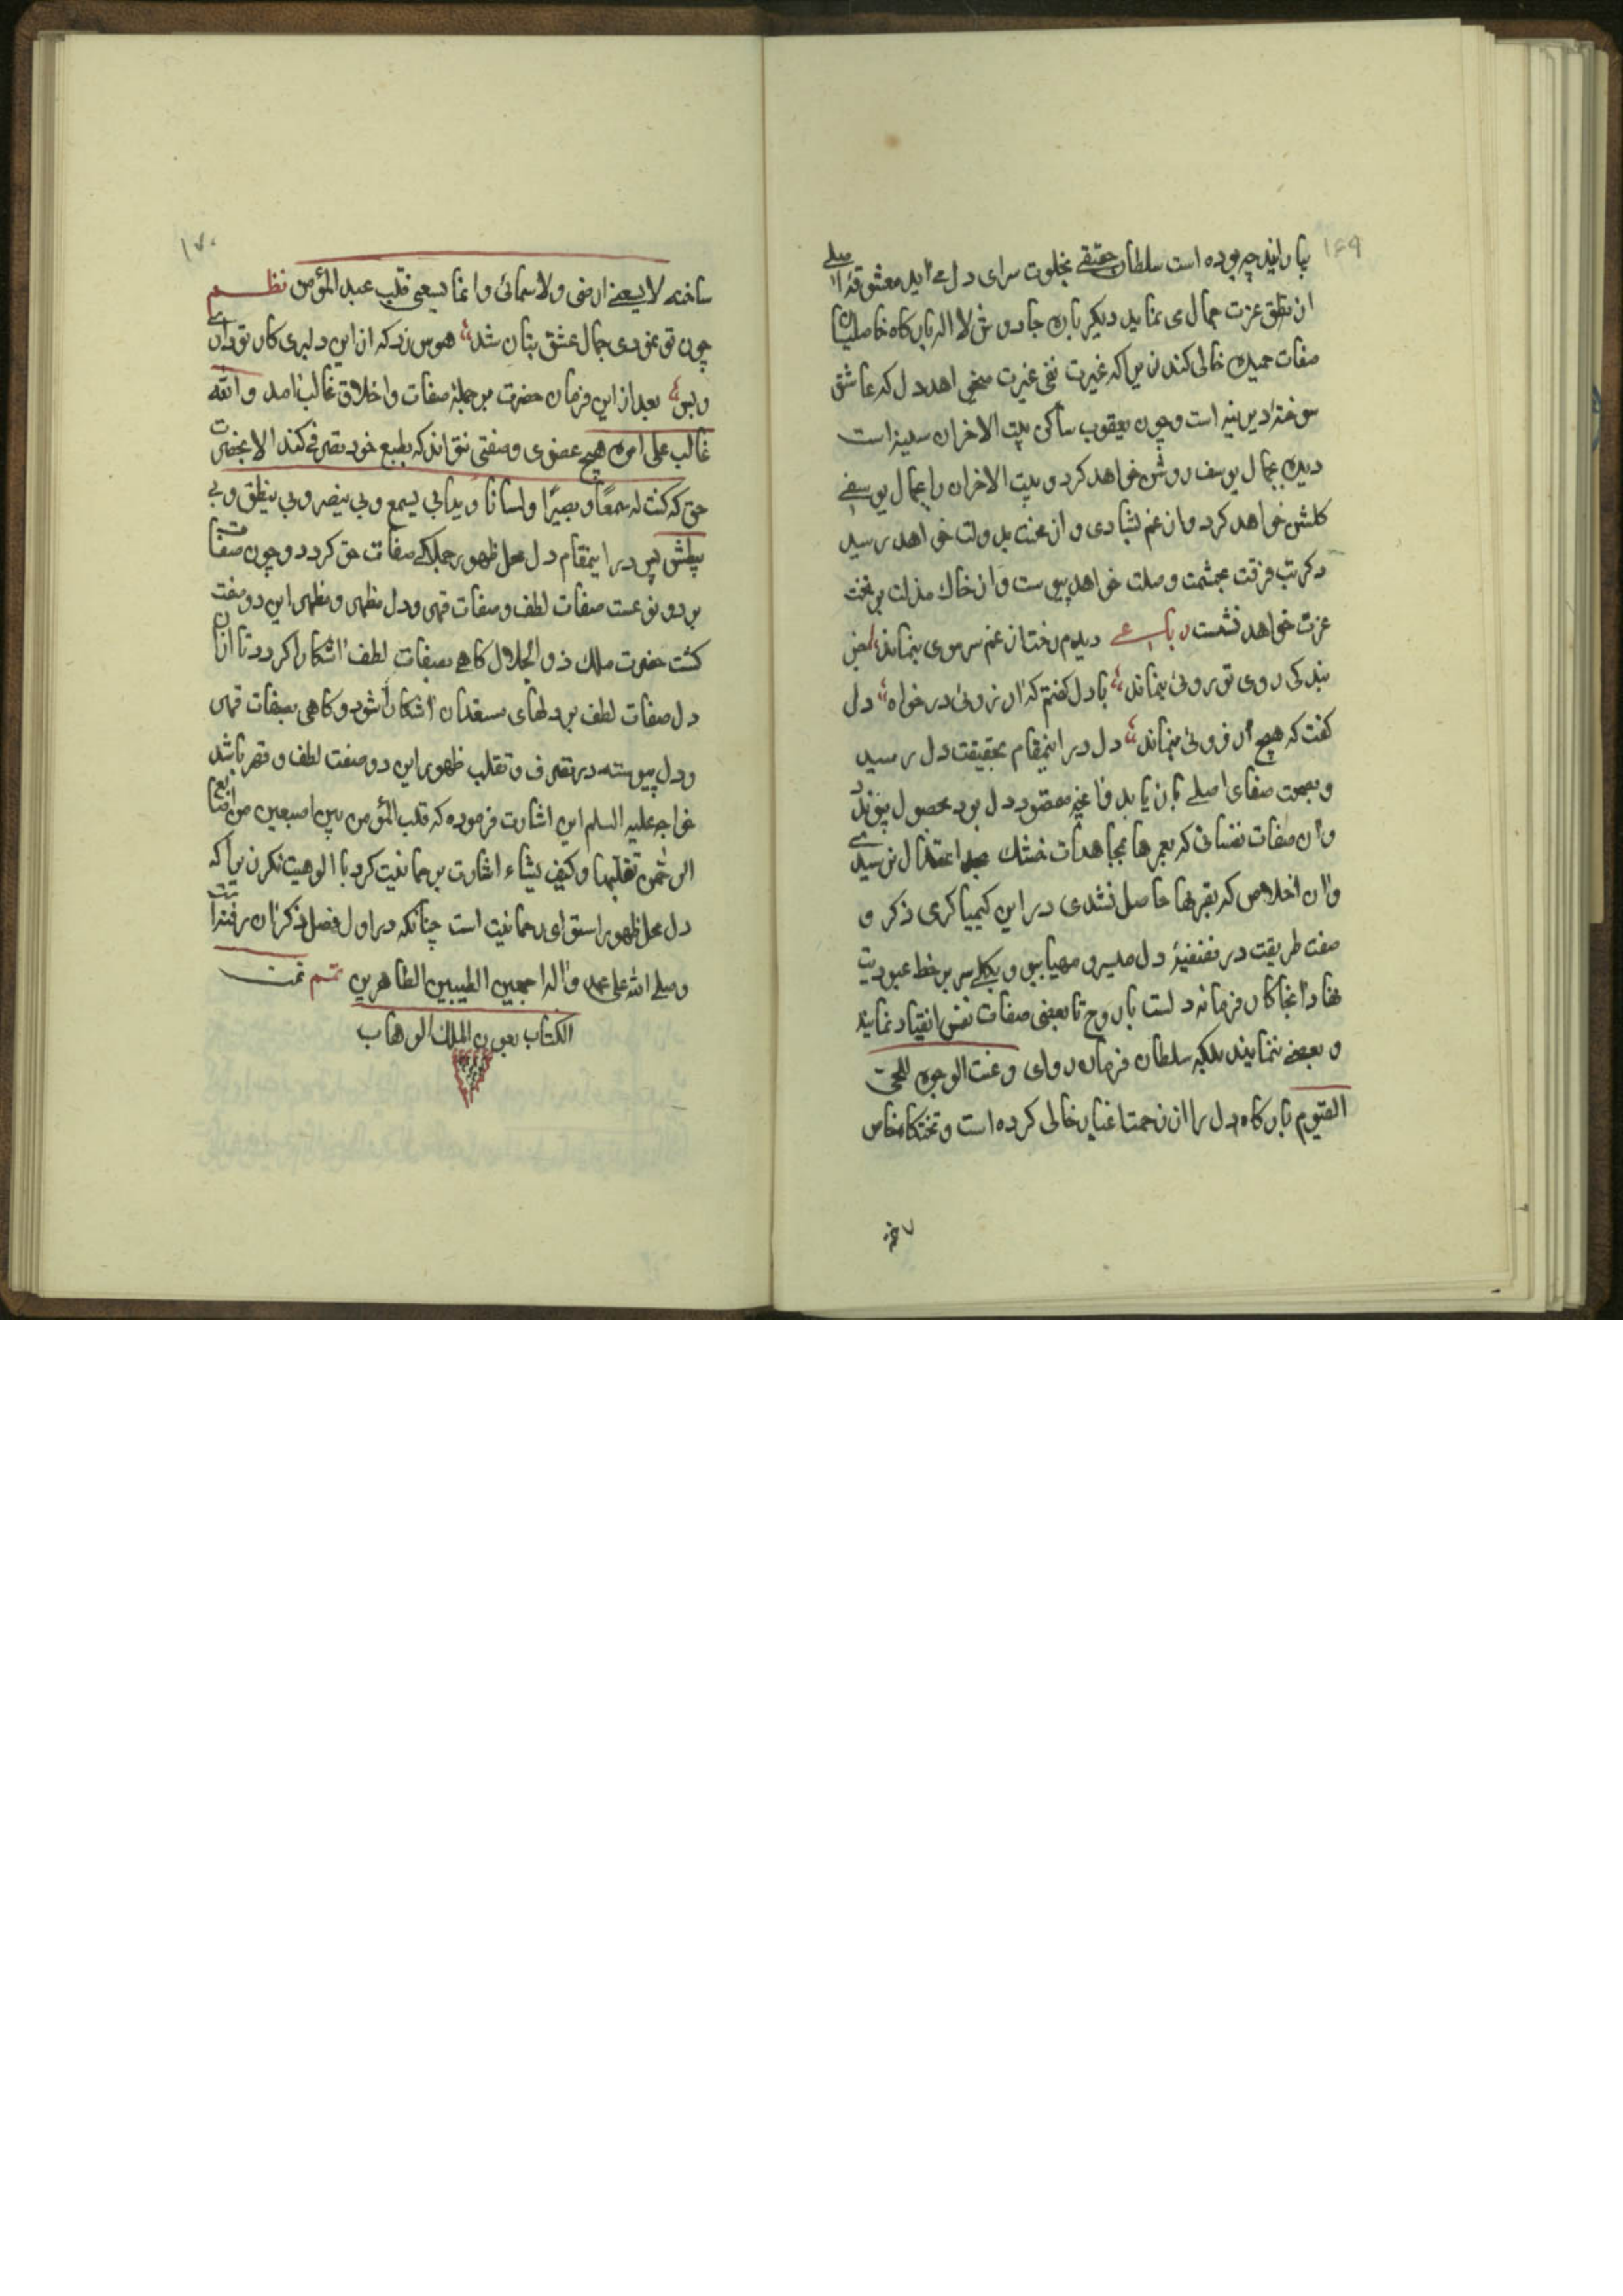 ۱۶۹
بیارایند چه بوده است سلطان حقیقی بخلوت سرای دل می آید معشوقهٔ اصلی
از تطق عزت جمال می نماید دیگر باره جاروش لا اله بارگاه خاص از
صفات حمیده خالی کند زیرا که غیرت نفی غیرت میخواهد دل که عاشق
سوخته دیرینه است و چون یعقوب ساکن بیت الاحزان سینه است
دیده بجمال یوسف روشن خواهد کرد و بیت الاحزان را بجمال یوسفی
کلشن خواهد کرد و از غم بشادی و از محنت بدولت خواهد رسید
و کربت فرقت بحشمت وصلت خواهد پیوست و از خاک مذلت بر تخت
عزت خواهد نشست رباعی دیدم رخت از غم سر موی بنماند
بندکی روی تو روئی بنماند با دل کفتم که آرزوئی درخواه دل
کفت که هیچ آرزوئی بنماند دل در اینمقام بحقیقت دل رسید
و بصحت صفای اصلی باز یابد و آنچه مقصود دل بود بحصول پیوندد
و آن صفات نفسانی که بعمرها بمجاهدات خشک بحد اعتدال نرسیدی
و آن اخلاص که بقرنها حاصل نشدی در این کیمیاکری ذکر و
صفت طریقت در تصفیهٔ دل میسر و مهیا بود و بکلی سر بر خط عبودیت
نهاد آنجا کار فرمانه دلست یا روح تا بعضی صفات نفس انقیاد نمایند
و بعضی ننمایند بلکه سلطان فرمان روای و عنت الوجوه للحی
القیوم بارکاه دل را از زحمت اغیار خالی کرده است و تختکاه خاص
۱۷۰
ساخته لا یسعنی ارضی ولا سمائی و انما یسعنی قلب عبد المؤمن نظم
چون تو نمودی جمال عشق بتان شد هوس زد که از این دلبری کار تو داری
و بس بعد از این فرمان حضرت بر جملهٔ صفات و اخلاق غالب آمد و الله
غالب علی امره هیچ عضوی و صفتی نتواند که بطبع خود تصرفی کند الا بحضرت
حق که کنت له سمعًا و بصیرًا و لسانا و یدا بی یسمع و بی یبصر و بی ینطق و بی
یبطش پس در اینمقام دل محل ظهور جملکی صفات حق کردد و چون صفات
بر دو نوعست صفات لطف و صفات قهر و دل مظهر و مظهر این دو صفت
کشت حضرت ملک ذو الجلال کاهی بصفات لطف آشکارا کردد تا از آن
دل صفات لطف بر دلهای مستعدان آشکارا شود و کاهی بصفات قهر
و دل پیوسته در تصرف و تقلب ظهور این دو صفت لطف و قهر باشد
خواجه علیه السلم این اشارت فرموده که قلب المؤمن بین اصبعین من اصابع
الرحمن تقلبها کیف یشاء اشارت برحمانیت کرد با الوهیت نکرد زیرا که
دل محل ظهور استوای رحمانیت است چنانکه در اول فصل ذکر آن رفته است
و صلی الله علی محمد و آله اجمعین الطیبین الطاهرین تمّ تمت
الکتاب بعون الملک الوهاب